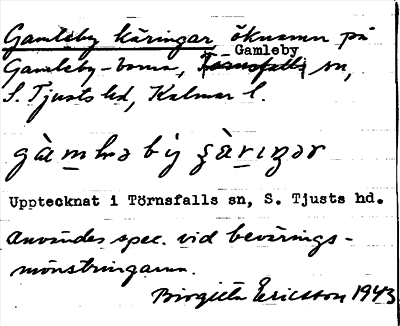 Gamleby käringar, öknamn på
Gamleby-borna, Gamleby sn,
S. Tjusts hd, Kalmar l.
Upptecknat i Törnsfalls sn, S. Tjusts hd.
Användes spec. vid bevärings-
mönstringarna.
Birgitta Ericsson 1943